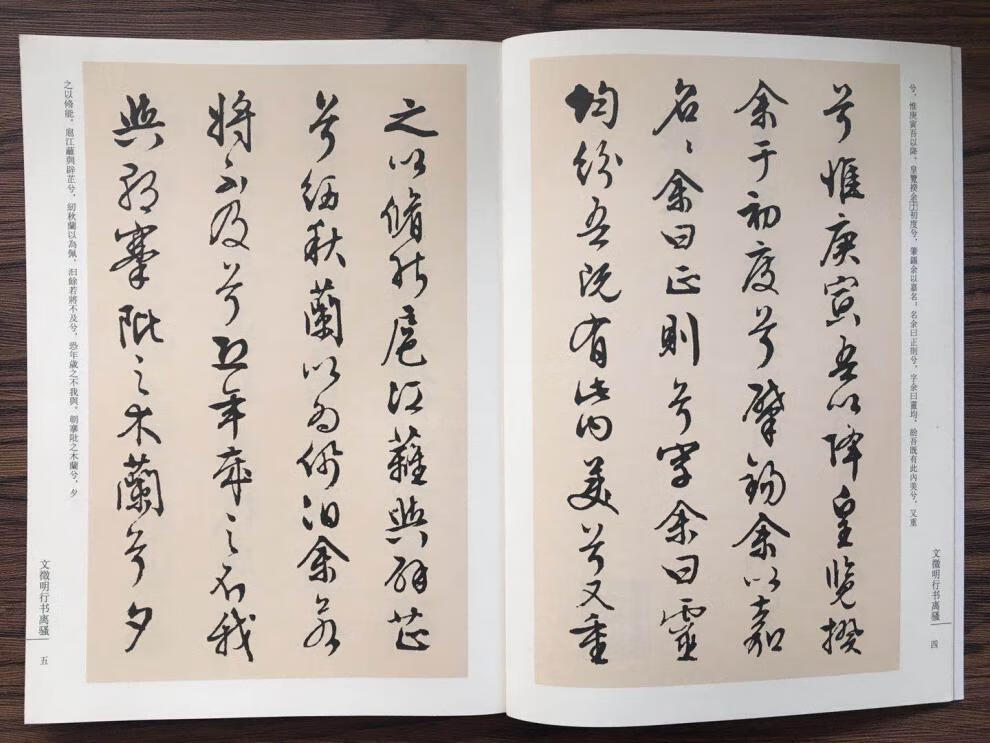 兮，惟庚寅吾以降。皇覽揆余于初度兮，肇錫余以嘉名。名余曰正則兮，字余曰靈均。紛吾既有此內美兮，又重
文徵明行书离骚
四
兮惟庚寅吾以降皇覽揆
余于初度兮肇錫余以嘉
名〻余曰正則兮字余曰靈
均紛吾既有此内美兮又重
之以脩能扈江蘺與辟芷
兮紉秋蘭以為佩汩余若
將不及兮恐年歲之不我
與朝搴阰之木蘭兮夕
之以脩能。扈江蘺與辟芷兮，紉秋蘭以為佩。汩餘若將不及兮，恐年歲之不我與。朝搴阰之木蘭兮，夕
文徵明行书离骚
五